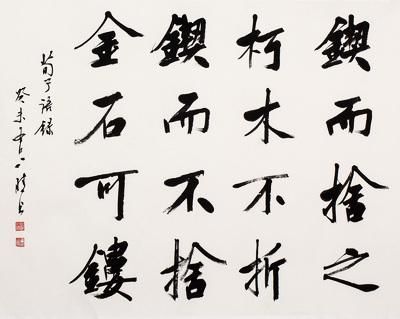 鍥而捨之
朽木不折
鍥而不捨
金石可鏤
荀子語錄
癸未